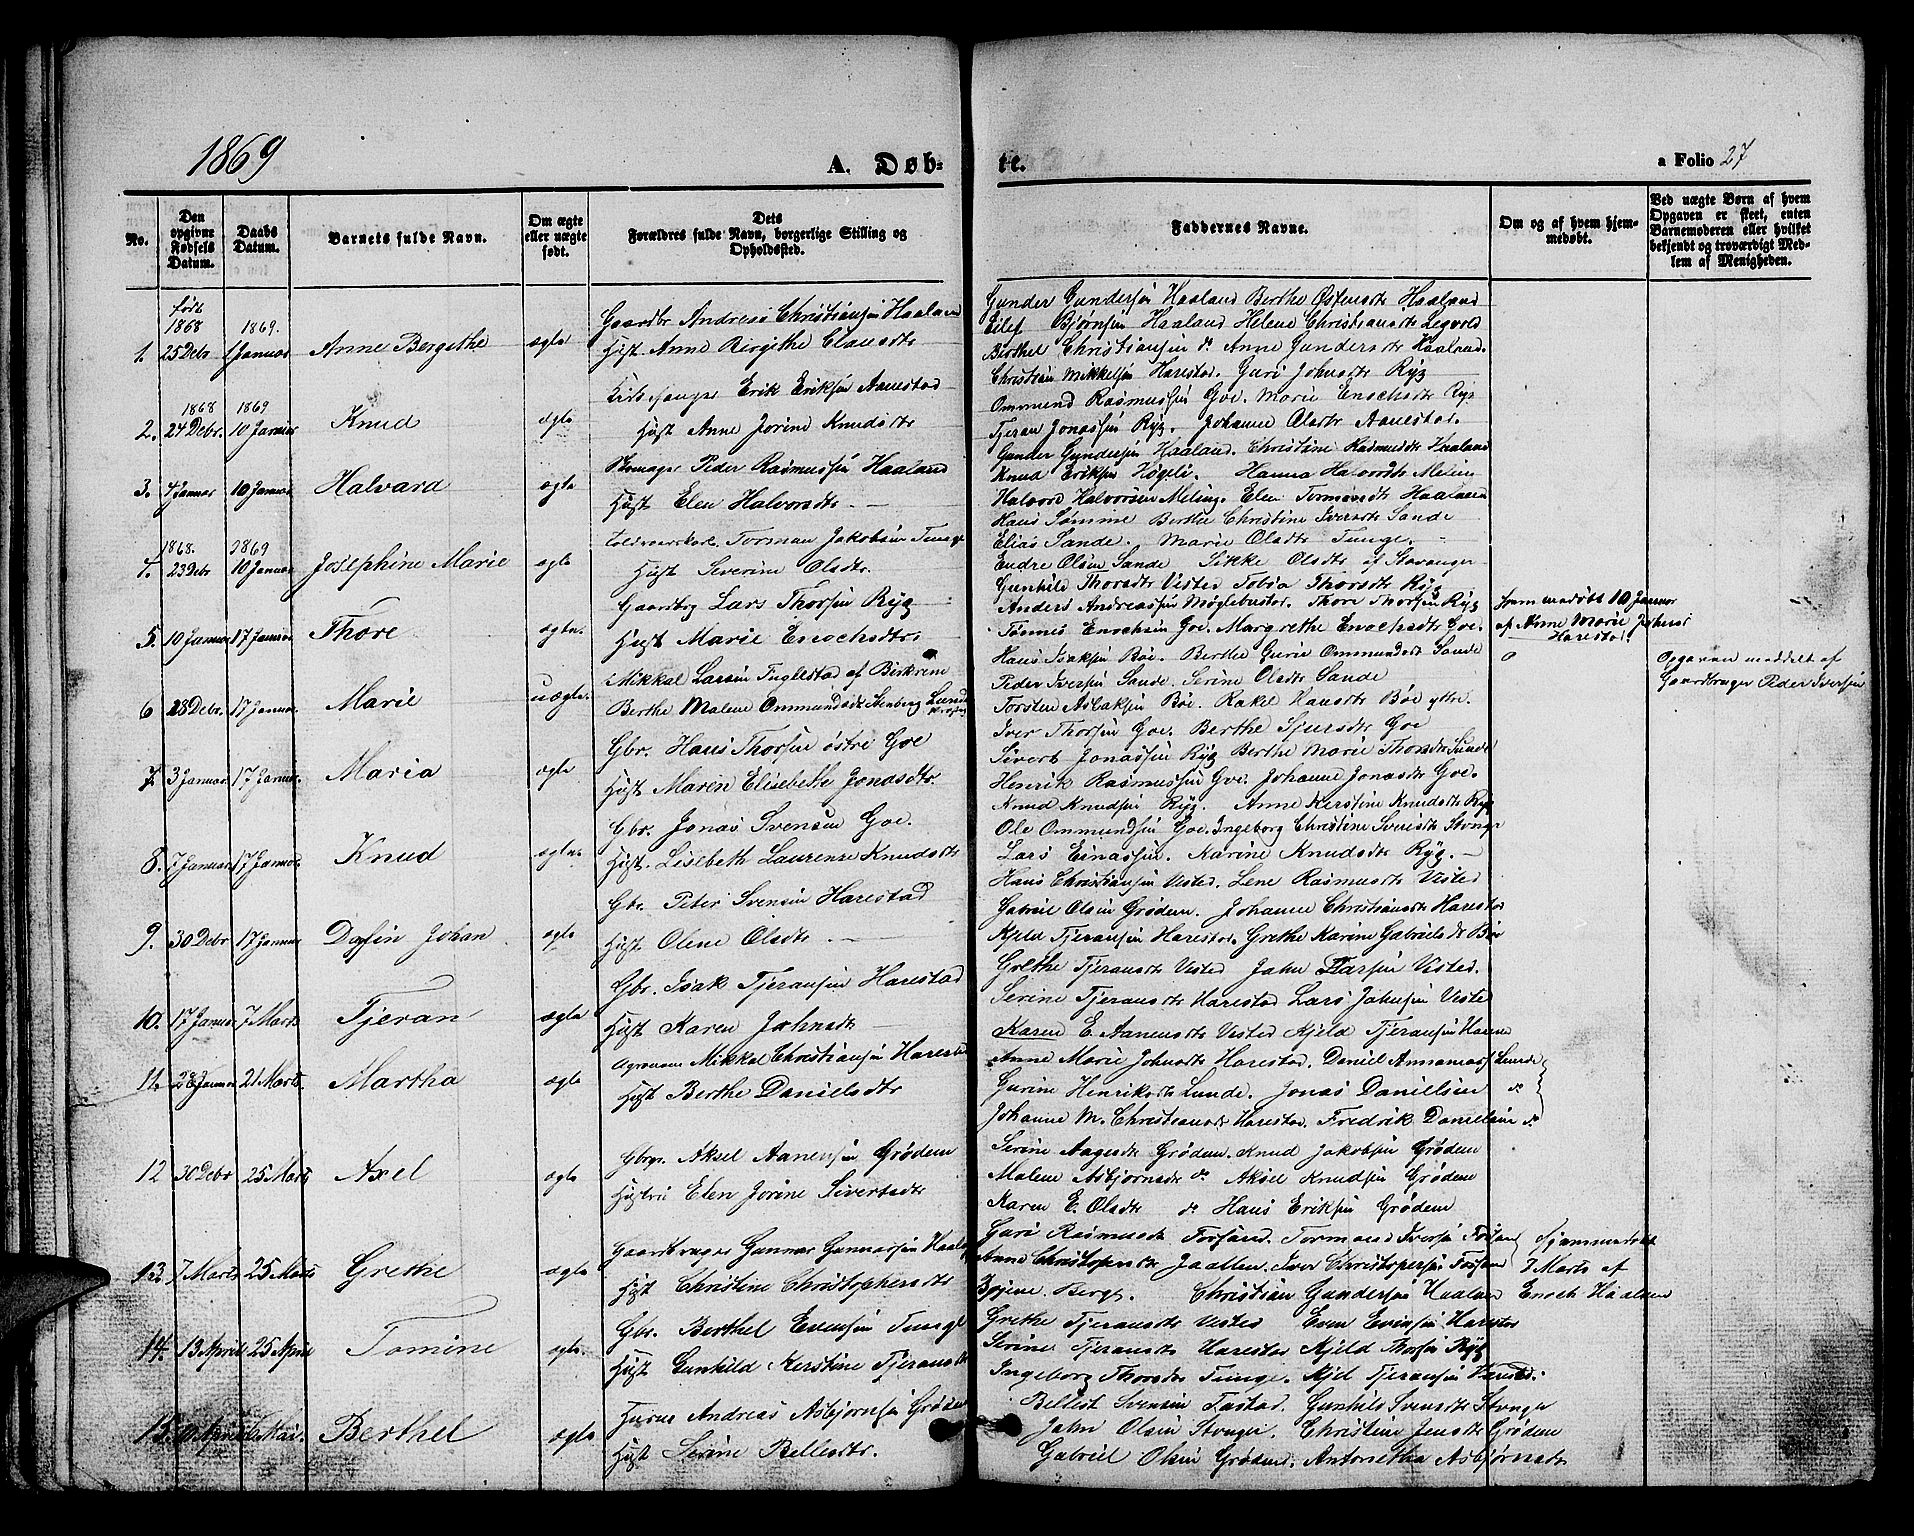 1869
A. Døb-
te.
a Folio 27
No.
Den opgivne Fødsels Datum.
Daabs Datum.
Barnets fulde Navn.
Om ægte eller uægte født.
Dets Forældres fulde Navn, borgerlige Stilling og Opholdssted.
Faddernes Navne.
Om og af hvem hjem-
medøbt.
Ved uægte Børn af hvem
Opgaven er skeet, enten
Barnemoderen eller hvilket
bekjendt og troværdigt Med-
lem af Menigheden.
født
1868 1869.
1. 25 Debr 1 Januar Anne Bergithe ægte
Gaardbr Andreas Christiansen Haaland
Hust. Anne Birgithe Clausdtr
Gunder Gundersen Haaland Berthe Ostensdtr Haaland
Eilef Bjørnsen Haaland Helene Christiansdtr Legvold
Berthel Christiansen do Anne Gundersdtr Haaland.
1868 1869
2. 24 Debr. 10 Januar Knud ægte
Kirkesanger Erik Eriksen Aanestad
Hust Anne Jorine Knudsdtr
Christian Mikkelsen Harestad. Guri Johnsdtr Ryg
Ommund Rasmussen Goe. Marie Enochsdtr Ryg
Tjeran Jonassen Ryg. Johanne Olsdtr Aanestad.
3. 4 Januar 10 Januar Halvard ægte
Skomager Peder Rasmussen Haaland
Hust Elen Halvorsdtr
Gunder Gundersen Haaland. Christine Rasmusdtr Haaland
Knud Eriksen Høgli. Hanna Halvordtr Meling
Halvord Halvorsen Meling. Elen Tormodsdtr Haaland
1868. 1869
4. 23 Debr 10 Januar Josephine Marie ægte
Torman Jakobsen Tunge
Hust Severine Olsdtr.
Hans Sømme Berthe Christine Iversdtr Sande
Elias Sande. Marie Olsdtr Tunge.
Endre Olsen Sande Sikke Olsdtr af Stavanger
5. 10 Januar 17 Januar Thore ægte.
Gaardbrg Lars Thorsen Ryg
Hust Marie Enochsdtr
Gunhild Thorsdtr Visted Tobia Thorsdtr Ryg
Anders Andreassen Møglebustad. Thore Thorsen Ryg
Tønnes Enochsen Goe. Margrethe Enochsdtr Goe.
hjemmedøbt 10 Januar
af Anne Marie Johnsd
Harestad.
6 28 Debr. 17 Januar Marie uægte.
Mikkal Larsen Fuglestad af Birkrem
Berthe Malene Ommundsdtr Stenberg Lunde
Hans Isaksen Bøe. Berthe Gurie Ommundsdt Sande
Peder Iversen Sande. Serine Olsdtr Sande
Torsten Asbaksen Bøe. Rakel Hansdtr Bøe ytre.
Opgaven meddelt af
Gaardbruger Peder Iversen
7. 3 Januar 17 Januar. Maria ægte
Gbr. Hans Thorsen østre Goe
Hust Maren Elisebeth Jonasdtr.
Iver Thorsen Goe. Berthe Sjursdtr Goe
Sivert Jonassen Ryg Berthe Marie Thorsdtr Sunde
Henrik Rasmussen Goe. Johanne Jonasdtr Goe.
8. 7 Januar 17 Januar Knud ægte.
Gbr. Jonas Svensen Goe.
Hust. Lisebeth Laurense Knudsdtr
Knud Knudsen Ryg. Anne Kerstine Knudsdtr Ryg
Ole Ommundsen Goe. Ingeborg Christine Sversdtr Stvnge
Lars Einassen. Karine Knudsdtr Ryg.
9. 30 Debr 17 Januar Dafin Johan ægte
Gbr Peter Svensen Harestad
Hust. Olene Olsdtr
Hans Christiansen Visted. Lene Rasmusdtr Visted
Gabriel Olsen Grødem. Johanne Christiansdtr Harestad
Kjeld Tjeransen Harestad. Grethe Karine Gabrielsdt Bøe
10. 17 Januar 7 Marts Tjeran ægte
Gbr. Isak Tjeransen Harestad
Hust Karen Johnsdtr
Grethe Tjeransdtr Visted John Larsen Visted.
Serine Tjeransdtr Harestad Lars Johnsen Viste
Karen E. Aanensdtr Visted Kjeld Tjeransen Harest
11. 28 Januar 21 Marts. Martha ægte
Agronom Mikkal Christiansen Harestad
Hust Berthe Danielsdtr
Anne Marie Johnsdtr Harestad. Daniel Annamars Lunde
Gurine Henriksdtr Lunde. Jonas Danielsen do
Johanne M. Christiansdtr Harestad. Fredrik Danielsen do
12 30 Debr 25 Marts Axel ægte
Gbrgr Aksel Aanensen Grødem
Hustru Elen Jorine Sivertsdtr
Serine Aagesdtr Grødem. Knud Jakobsen Grødem
Malene Asbjornsdtr do Aksel Knudsen Grødem
Karen E. Olsdtr do Hans Eriksen Grødem
13. 7 Marts 25 Marts Grethe ægte
Gaardbruger Gunnar Gunnarsen Haaland
Hust Christine Christophersdtr
Guri Rasmusdt Forsand. Tormand Iversen Forsand
Anne Christophersdtr Jaatten. Iver Christopersen Forsand
Berge. Christian Gundersen Haaland
hjemmedøbt
7 Marts af
Enoch Haaland
14. 13 April 25 April Tomine ægte.
Gbr. Berthel Evensen Tunge
Hust Gunhild Kerstine Tjeransdtr
Grethe Tjeransdtr Visted Even Evensen Harestad
Serine Tjeransdtr Harestad Kjeld Thorsen Ryg
Ingeborg Thorsdtr Tunge. Kjel Tjeransen Harestad.
15. Mai. Berthel ægte
Andreas Asbjornsen Grødem
Hust Serine Bellesdtr.
Bellest Svensen Tastad. Gunhild Svensdtr Stvnge
John Olsen Stvnge. Christine Jensdtr Grødem
Gabriel Olsen Grødem. Antonetha Asbjørnsdtr